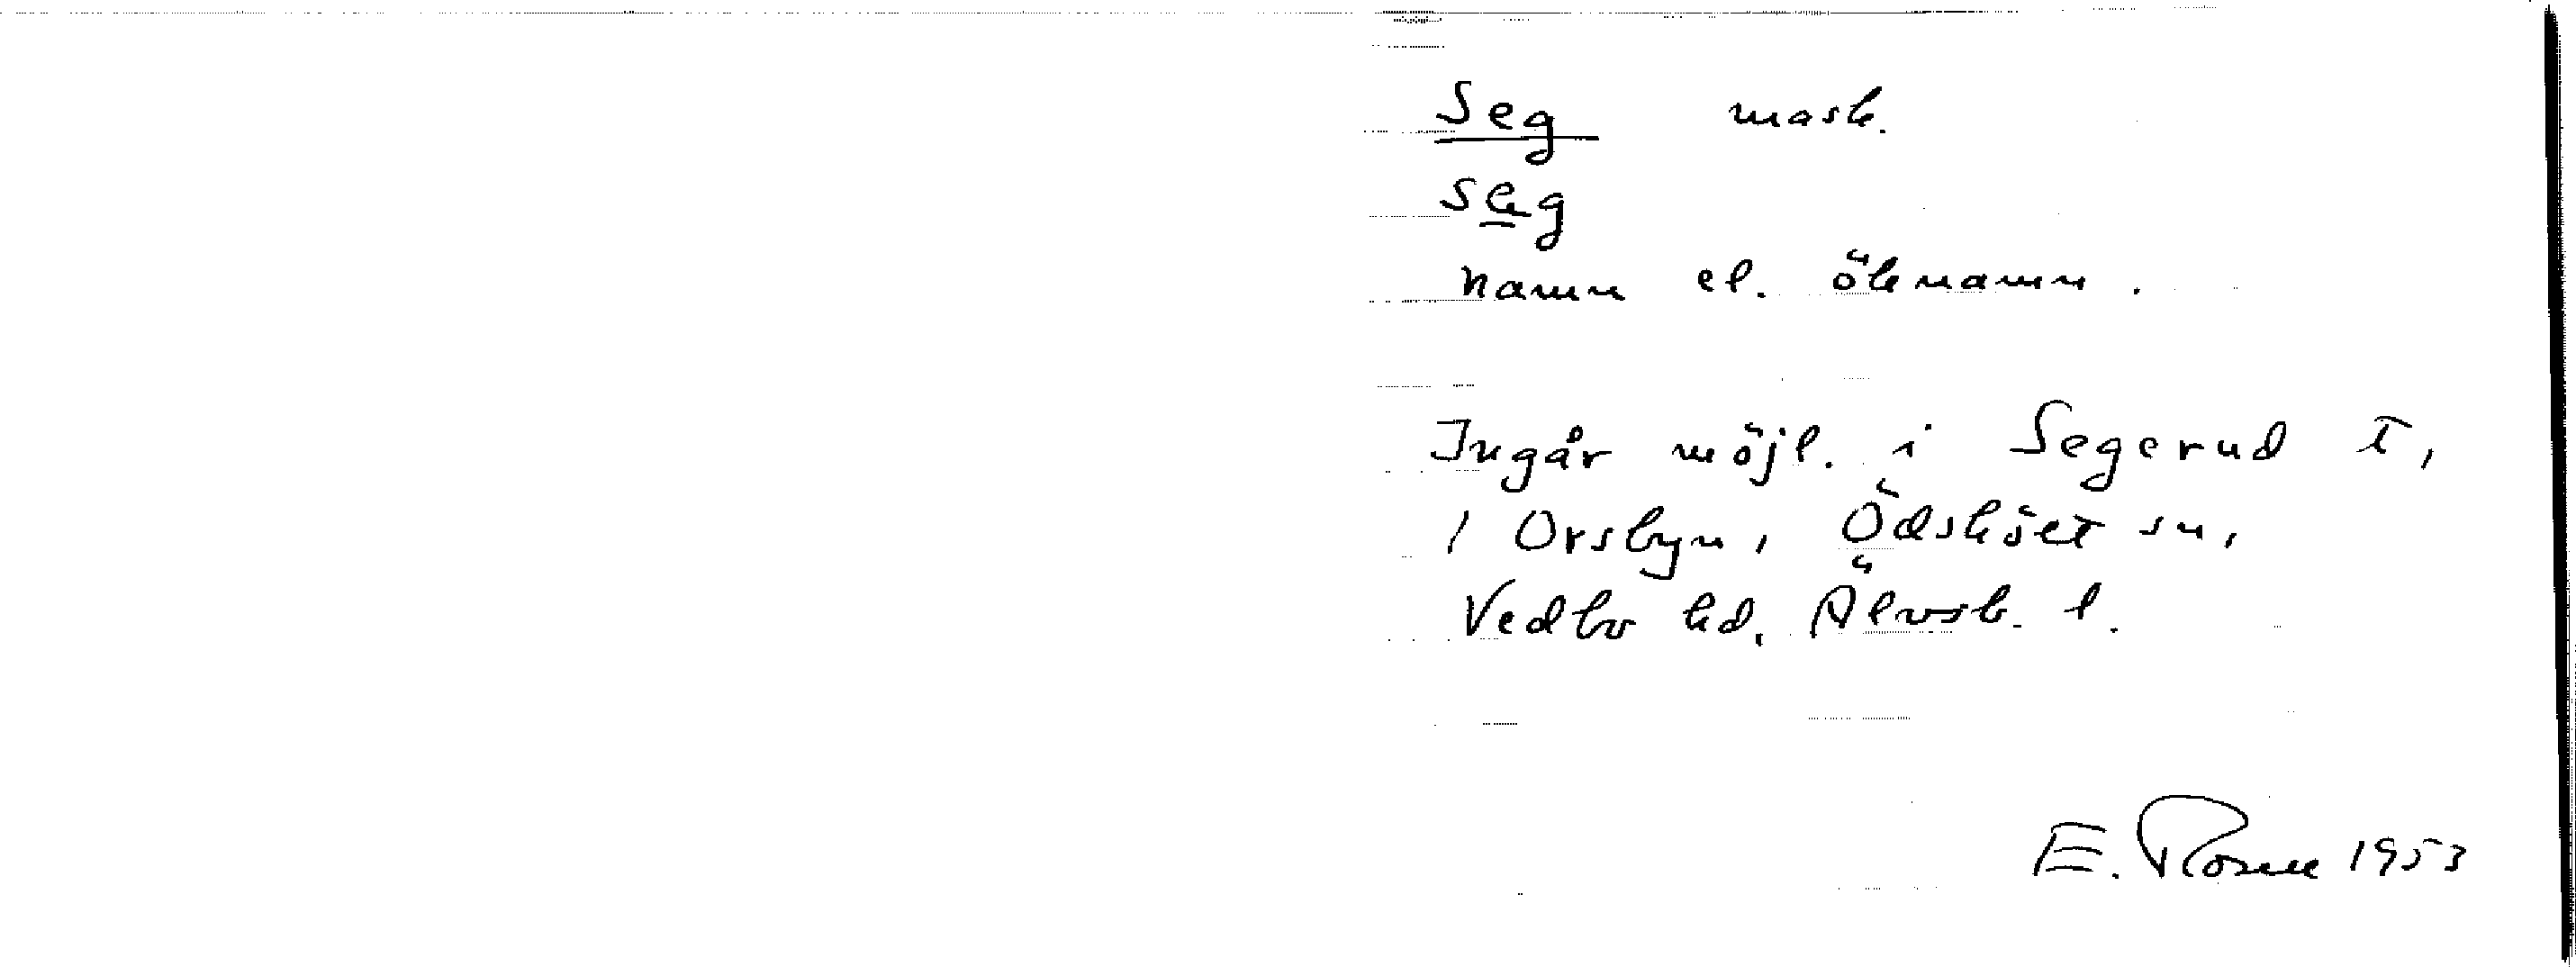 Seg mask.
seg
namn el. öknamn.
Ingår möjl. i Segerud t,
i Orsbyn, Ödsköet sn,
Vedbo hd. Älvsb. l.
E. Rosell 1953